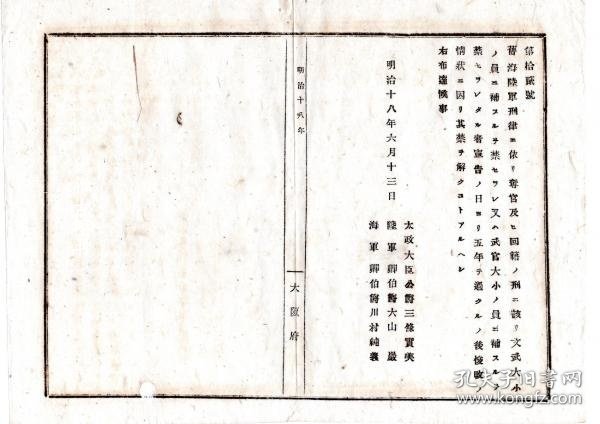 第拾貳號
舊海陸軍刑律ニ依リ奪官及ヒ回籍ノ刑ニ該リ文武大小
ノ員ニ補スルヲ禁セラレ又ハ武官大小ノ員ニ補スルヲ
禁セラレタル者宣告ノ日ヨリ五年ヲ過クルノ後悛改ノ
情狀ニ因リ其禁ヲ解クコトアルヘシ
右布達候事
明治十八年六月十三日
太政大臣公爵三條實美
陸軍卿伯爵大山巖
海軍卿伯爵川村純義
明治十八年
大阪府
孔夫子旧书网
www.kongfz.com